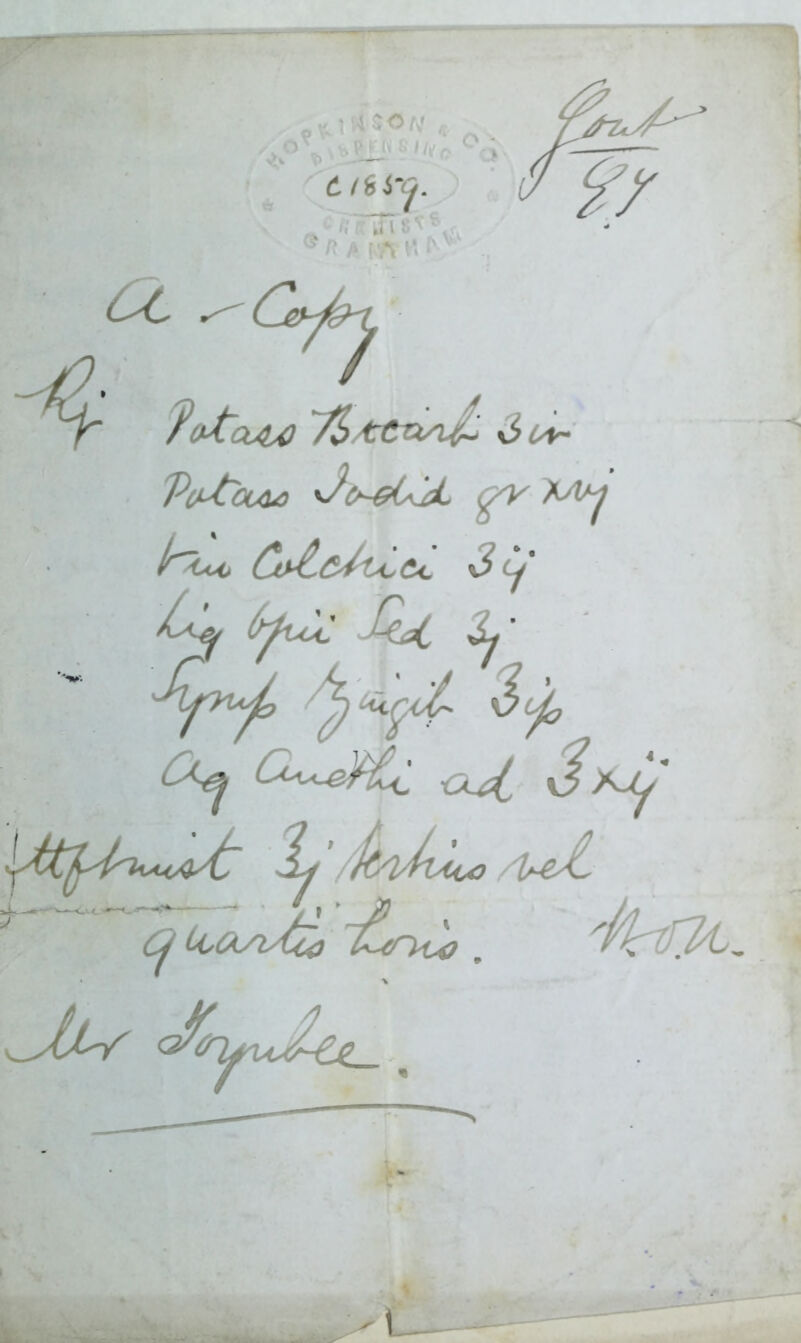 HOPKINSON & CO.
DISPENSING
C1859.
CHEMISTS
GRANTHAM
Gout
A - Copy
Rx Potass Bicarb ʒiv
Potass Iodid gr xvj
Vin Colchici ʒij
Liq Opii Sed ʒj
Syrup Zingib ʒiß
Aq Anethi ad ℥xij
Ft mist ℥j tertiis vel
quartis horis.
Mr Toynbee.